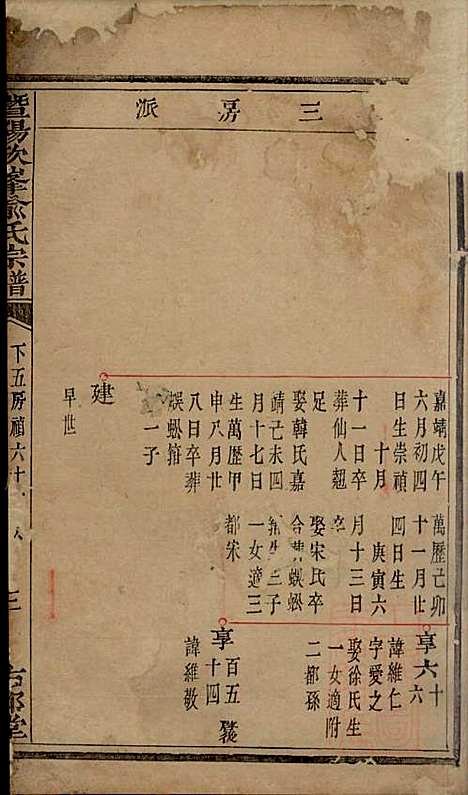 三房派
嘉靖戊午
六月初四
日生崇禎
十月
十一日卒
葬仙人翹
足
娶韓氏嘉
靖己未四
月十七日
生萬歷甲
申八月廿
八日卒葬
蜈蚣箝
一子
建
早世
萬歷己卯
十一月廿
四日生
庚寅六
月十三日
卒
娶宋氏卒
合葬蜈蚣
箝生三子
一女適三
都宋
享六十六
諱維仁
字愛之
娶徐氏生
一女適附
二都孫
享百五十四
諱維敬
暨陽次峯俞氏宗譜
下五房禎六十
三